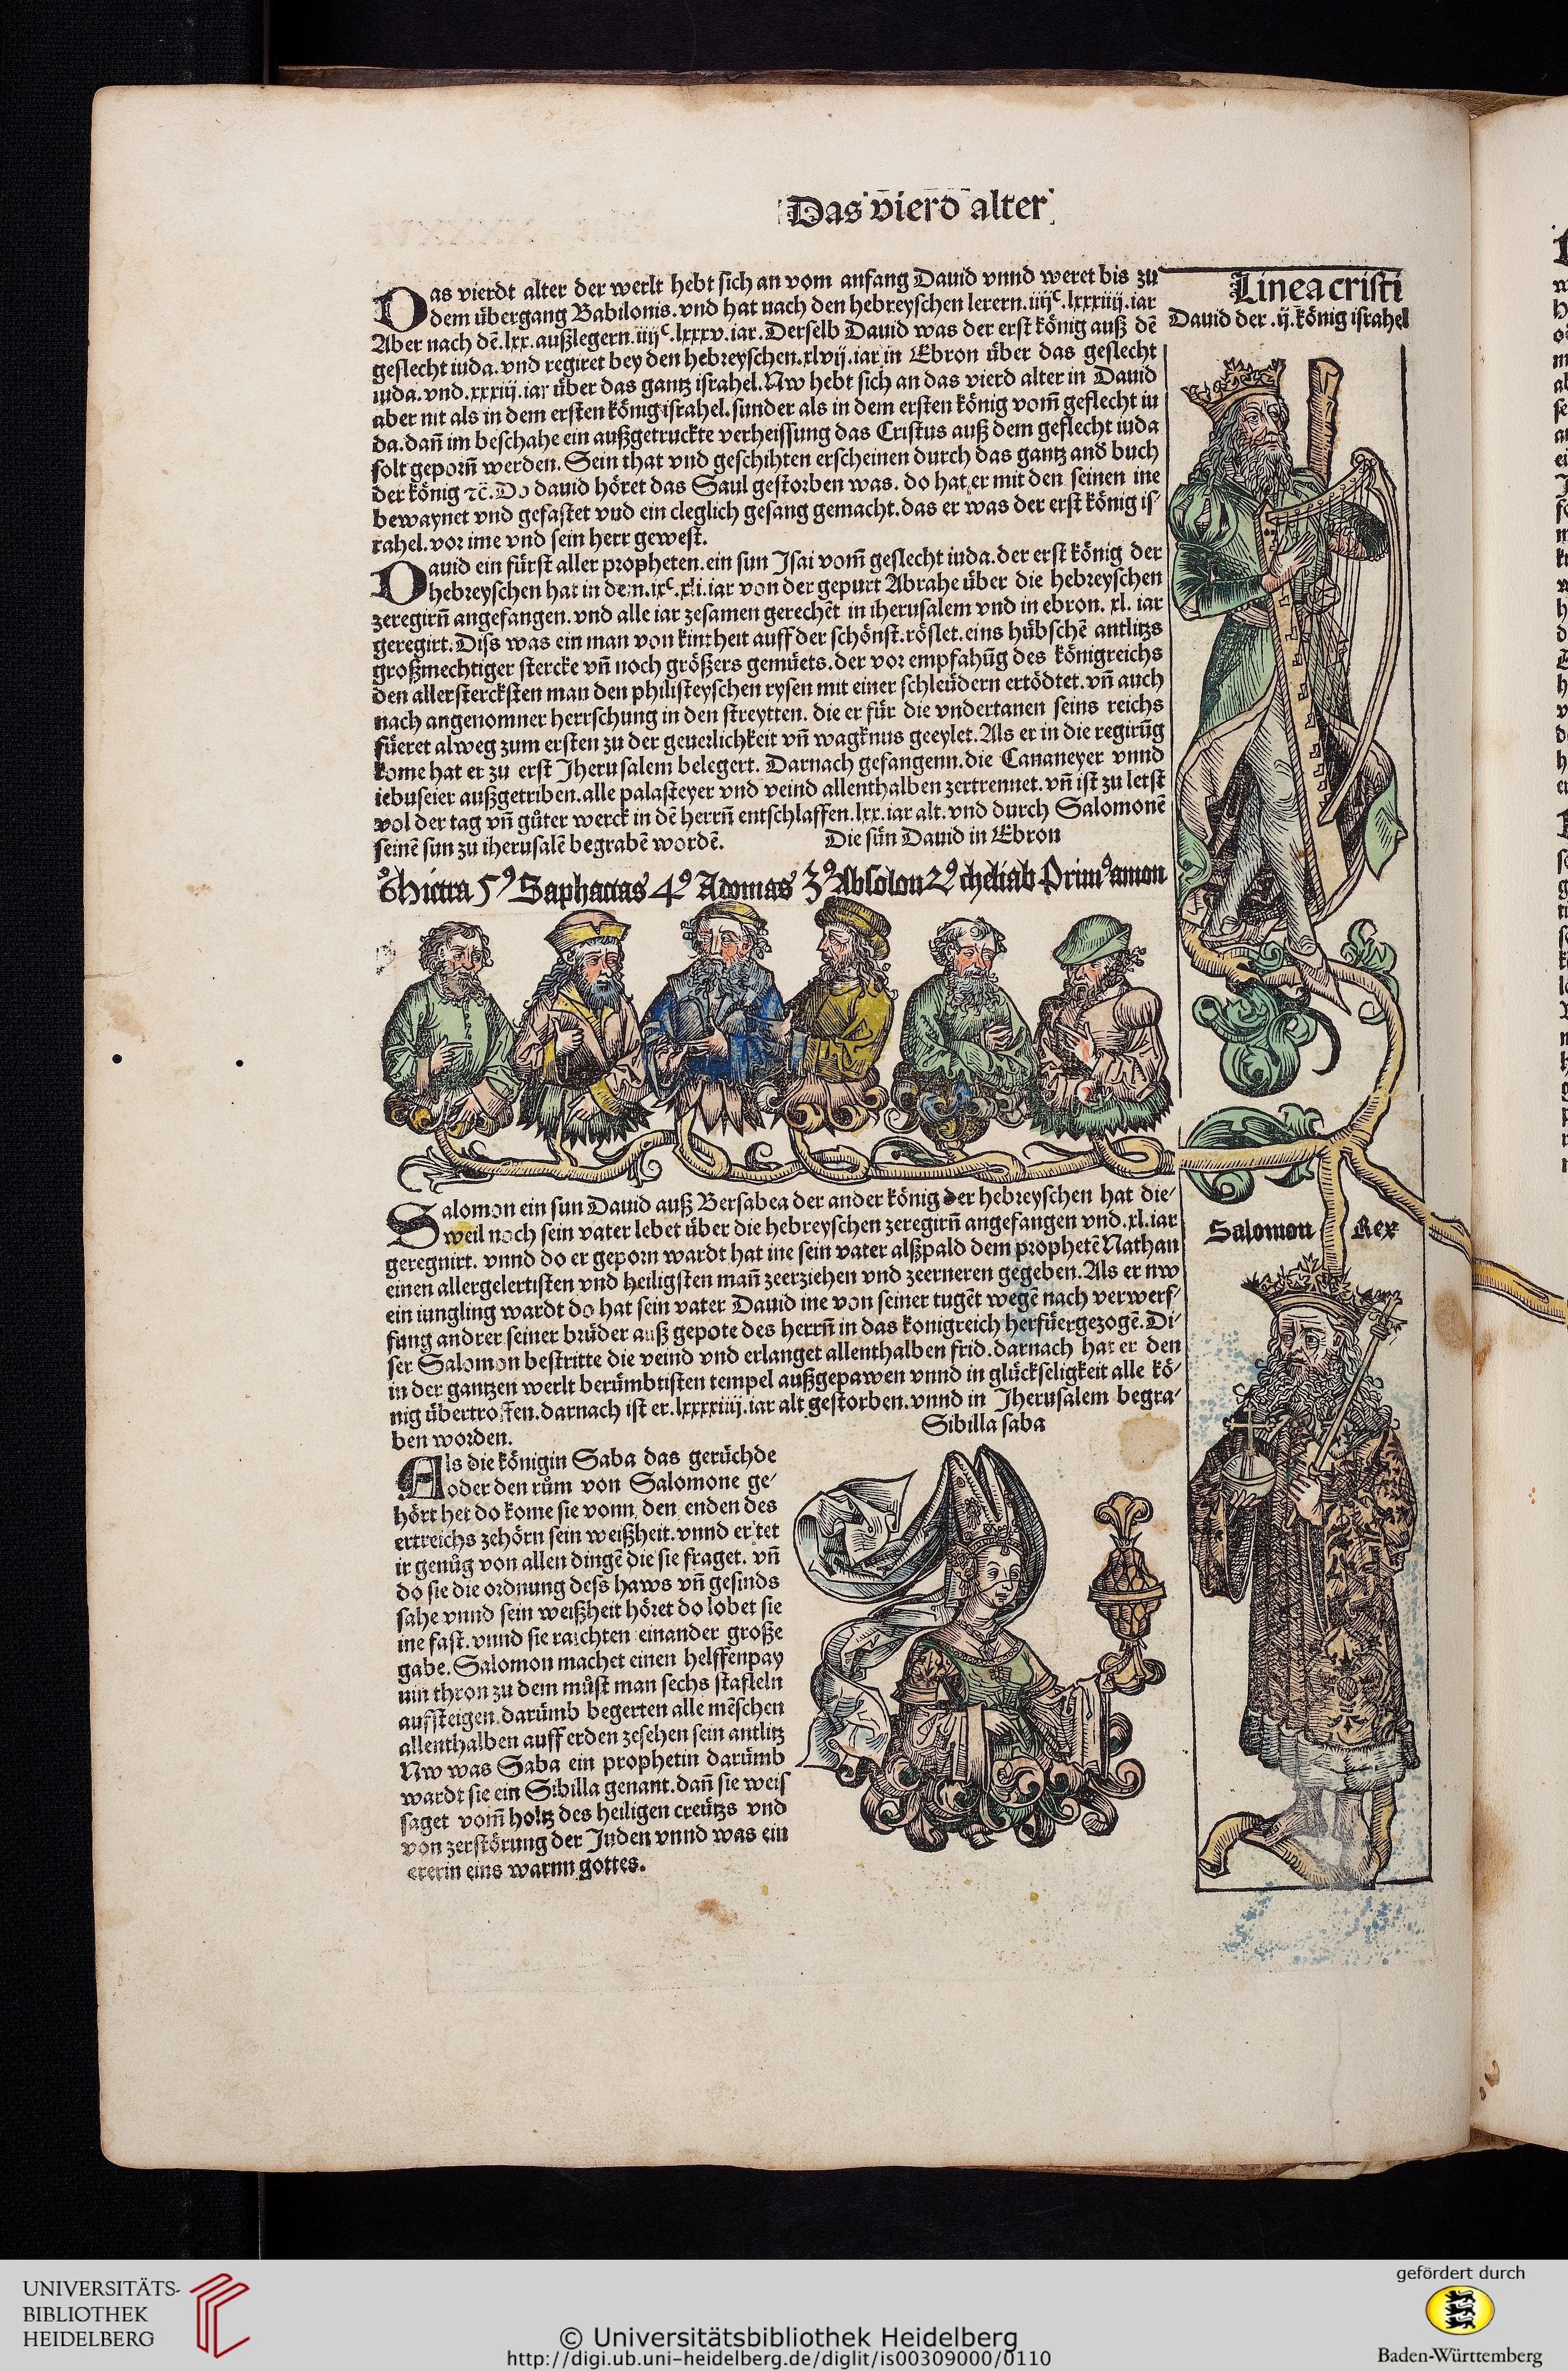 Das vierd alter
Das vierdt alter der werlt hebt sich an vom anfang Dauid vnnd weret bis zu
dem übergang Babilonis. vnd hat nach den hebreyschen lerern. iiijᶜ. lxxxiiij. iar
Aber nach dē. lxx. außlegern. iiijᶜ. lxxxv. iar. Derselb Dauid was der erst könig auß dē
geslecht iuda. vnd regiret bey den hebreyschen. xlvij. iar in Ebron über das geslecht
iuda. vnd. xxxiij. iar über das gantz israhel. Nw hebt sich an das vierd alter in Dauid
aber nit als in dem ersten könig israhel. sunder als in dem ersten könig vom̄ geslecht iu
da. dan̄ im beschahe ein außgetruckte verheissung das Cristus auß dem geslecht iuda
solt geporn̄ werden. Sein that vnd geschihten erscheinen durch das gantz and buch
der könig ⁊c̄. Do dauid höret das Saul gestorben was. do hat er mit den seinen ine
bewaynet vnd gefastet vnd ein cleglich gesang gemacht. das er was der erst könig is/
rahel. vor ime vnd sein herr gewest.
Dauid ein fürst aller propheten. ein sun Isai vom̄ geslecht iuda. der erst könig der
hebreyschen hat in dem. ixᶜ. xli. iar von der gepurt Abrahe über die hebreyschen
zeregirn̄ angefangen. vnd alle iar zesamen gerechēt in iherusalem vnd in ebron. xl. iar
geregirt. Diss was ein man von kintheit auff der schönst. röslet. eins hübschē antlitzs
großmechtiger stercke vn̄ noch größers gemüets. der vor empfahūg des königreichs
den allerstercksten man den philisteyschen rysen mit einer schleüdern ertödtet. vn̄ auch
nach angenomner herrschung in den streytten. die er für die vndertanen seins reichs
füeret alweg zum ersten zu der geuerlichkeit vn̄ wagknus geeylet. Als er in die regirūg
kome hat er zu erst Iherusalem belegert. Darnach gefangenn. die Cananeyer vnnd
iebuseier außgetriben. alle palasteyer vnd veind allenthalben zertrennet. vn̄ ist zu letst
vol der tag vn̄ gůter werck in dē herrn̄ entschlaffen. lxx. iar alt. vnd durch Salomonē
seinē sun zu iherusalē begrabē wordē.
Die sün Dauid in Ebron
6⁹ Hictra 5⁹ Saphacias 4⁹ Adonias 3⁹ Absolon 2⁹ cheliab Prim⁹ amon
Salomon ein sun Dauid auß Bersabea der ander könig der hebreyschen hat die/
weil noch sein vater lebet über die hebreyschen zeregirn̄ angefangen vnd. xl. iar
geregnirt. vnnd do er geporn wardt hat ine sein vater alßpald dem prophetē Nathan
einen allergelertisten vnd heiligsten man̄ zeerziehen vnd zeerneren gegeben. Als er nw
ein iungling wardt do hat sein vater Dauid ine von seiner tugēt wegē nach verwerf/
fung andrer seiner brüder auß gepote des herrn̄ in das konigreich herfüergezogē. Di/
ser Salomon bestritte die veind vnd erlanget allenthalben frid. darnach hat er den
in der gantzen werlt berümbtisten tempel außgepawen vnnd in glückseligkeit alle kö/
nig übertroffen. darnach ist er. lxxxxiiij. iar alt gestorben. vnnd in Iherusalem begra/
ben worden.
Sibilla saba
Als die königin Saba das gerüchde
oder den rům von Salomone ge/
hört het do kome sie vonn den enden des
ertreichs zehörn sein weißheit. vnnd er tet
ir genůg von allen dingē die sie fraget. vn̄
do sie die ordnung dess haws vn̄ gesinds
sahe vnnd sein weißheit höret do lobet sie
ine fast. vnnd sie raichten einander große
gabe. Salomon machet einen helffenpay
nin thron zu dem můst man sechs staffeln
aufsteigen. darümb begerten alle mēschen
allenthalben auff erden zesehen sein antlitz
Nw was Saba ein prophetin darümb
wardt sie ein Sibilla genant. dan̄ sie weis
saget vom̄ holtz des heiligen creützs vnd
von zerstörung der Juden vnnd was ein
ererin eins warnn gottes.
Linea cristi
Dauid der .ij. könig israhel
Salomon Rex
UNIVERSITÄTS-
BIBLIOTHEK
HEIDELBERG
© Universitätsbibliothek Heidelberg
http://digi.ub.uni-heidelberg.de/diglit/is00309000/0110
gefördert durch
Baden-Württemberg